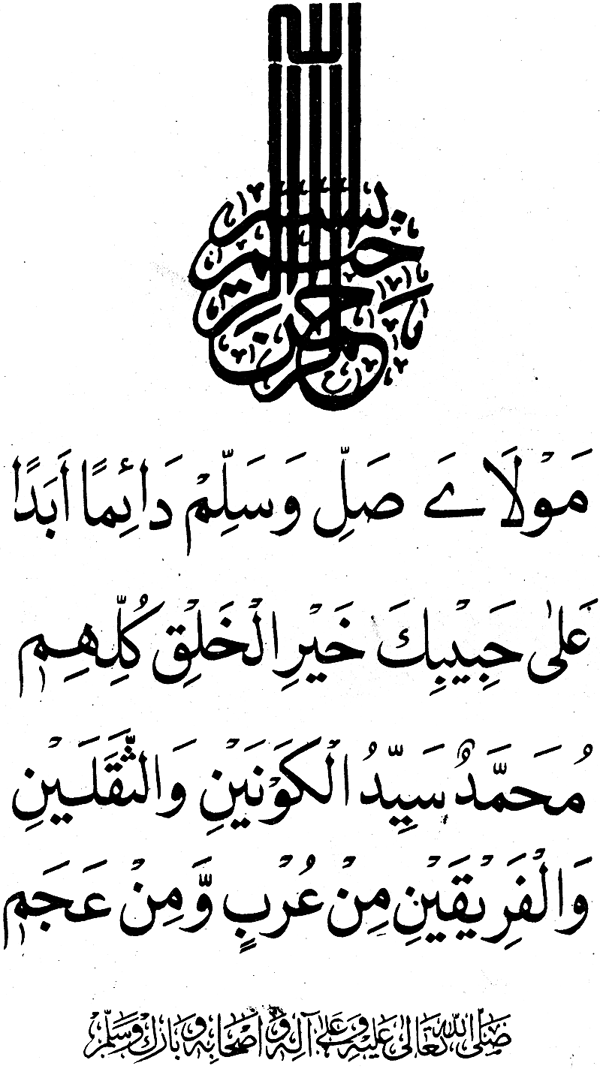 بسم الله الرحمن الرحيم
مَوْلَاىَ صَلِّ وَسَلِّمْ دَائِمًا اَبَدًا
عَلٰى حَبِيْبِكَ خَيْرِ الْخَلْقِ كُلِّهِمٖ
مُحَمَّدٌ سَيِّدُ الْكَوْنَيْنِ وَالثَّقَلَيْنِ
وَالْفَرِيْقَيْنِ مِنْ عُرْبٍ وَّمِنْ عَجَمٖ
صَلَّى اللهُ تَعَالٰى عَلَيْهِ وَعَلٰى آلِهٖ وَاَصْحَابِهٖ وَبَارَكَ وَسَلَّمْ